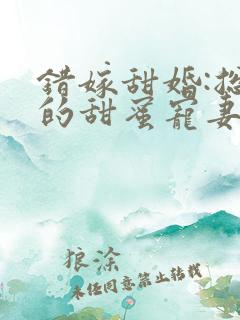 錯嫁甜婚:
的甜蜜寵妻
狼涂
未经同意禁止转载